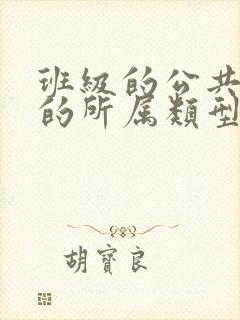 班級的公共
的所属類型
胡寳良